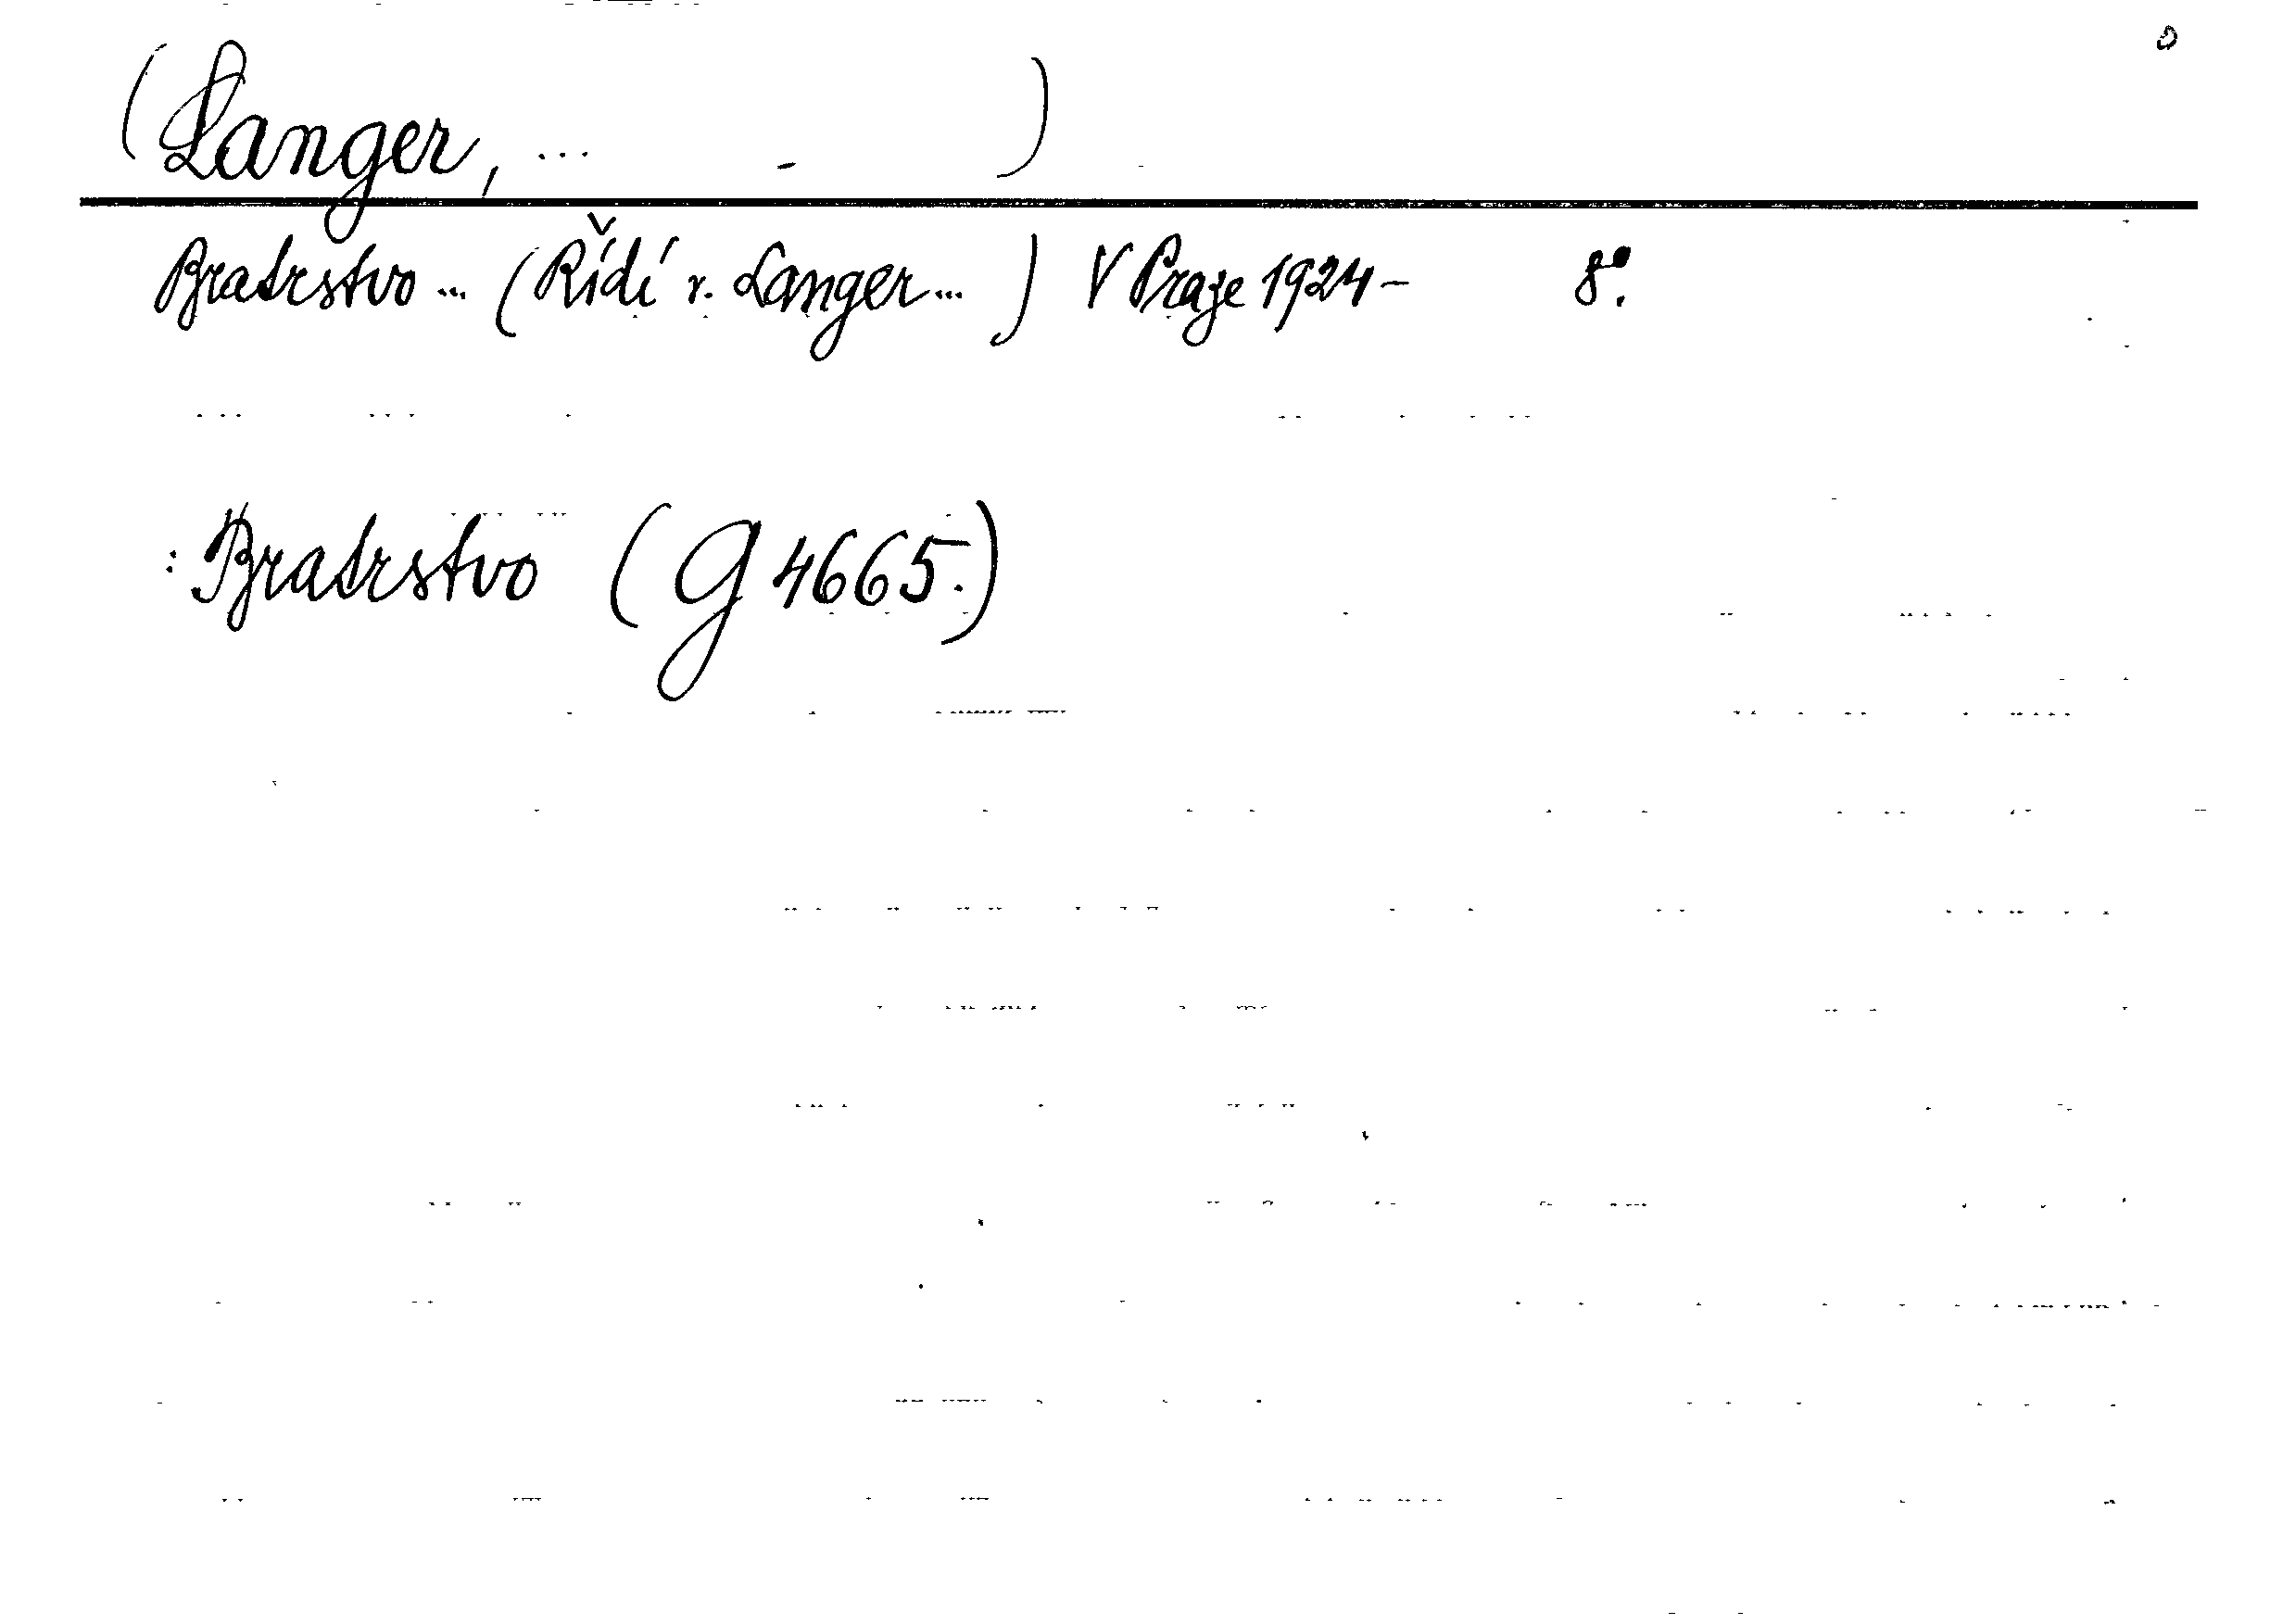 (Langer, ... - )
Bratrstvo ... (Řídí r. Langer ... ) V Praze 1924 - 8°.
: Bratrstvo (G 4665.)